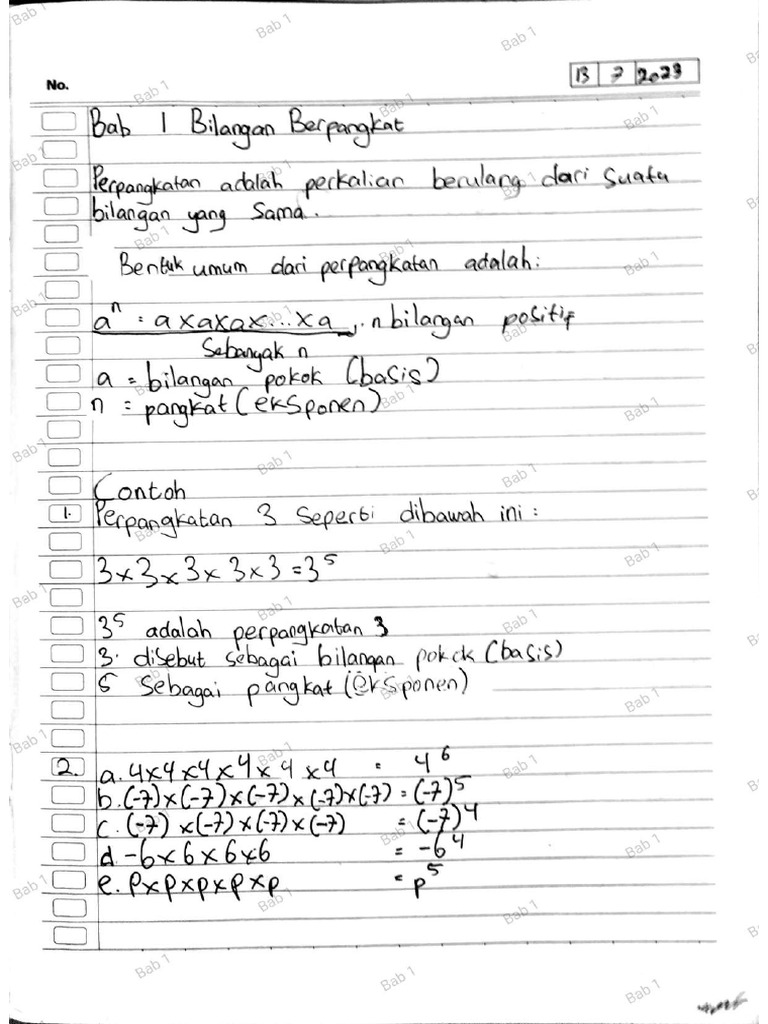 No.
13 7 2023
Bab 1 Bilangan Berpangkat
Perpangkatan adalah perkalian berulang dari suatu
bilangan yang sama.
Bentuk umum dari perpangkatan adalah:
aⁿ = a x a x a x ... x a, n bilangan positif
Sebanyak n
a = bilangan pokok (basis)
n = pangkat (eksponen)
Contoh
1. Perpangkatan 3 seperti dibawah ini :
3 x 3 x 3 x 3 x 3 = 3⁵
3⁵ adalah perpangkatan 3
3. disebut sebagai bilangan pokok (basis)
5 sebagai pangkat (eksponen)
2. a. 4 x 4 x 4 x 4 x 4 x 4 = 4⁶
b. (-7) x (-7) x (-7) x (-7) x (-7) = (-7)⁵
c. (-7) x (-7) x (-7) x (-7) = (-7)⁴
d. -6 x 6 x 6 x 6 = -6⁴
e. p x p x p x p x p = p⁵
Bab 1